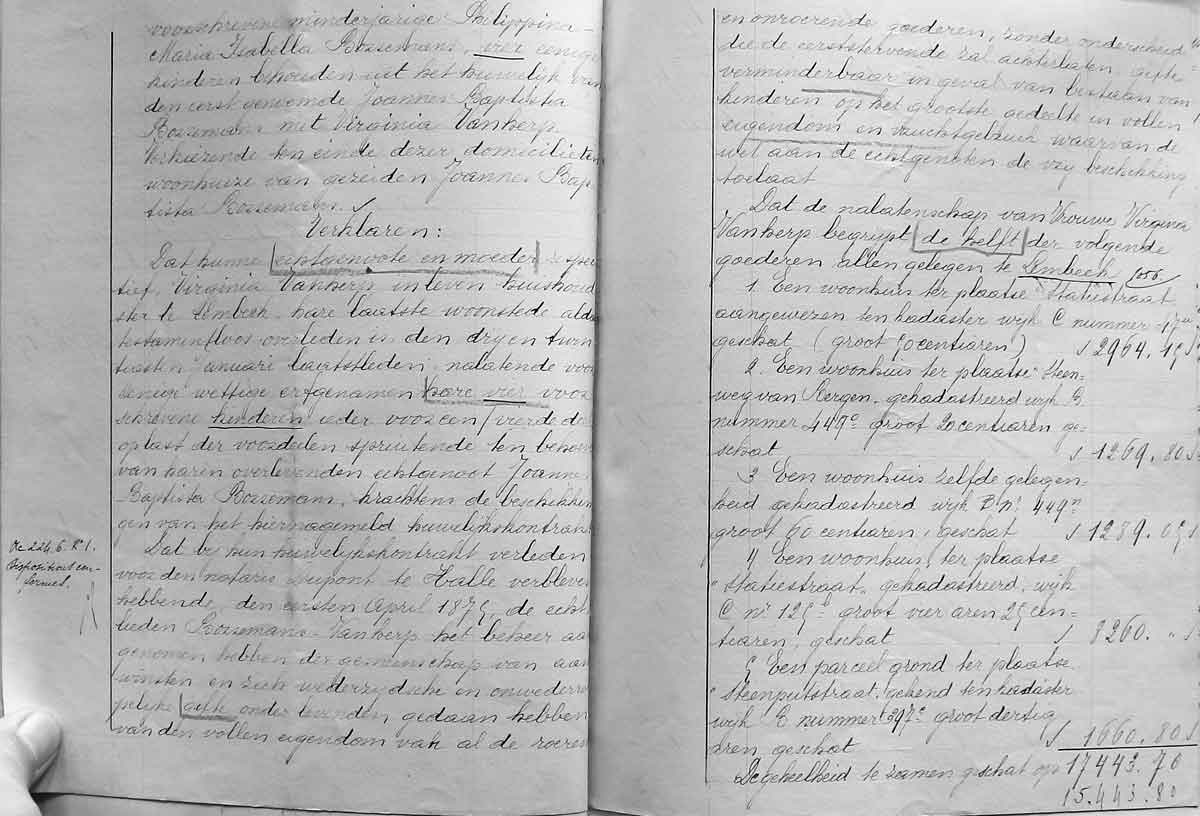 voorschrevene minderjarige Philippina-
Maria Isabella Bossemans, vier eenige
kinderen behouden uit het huwelijk van
den eerst genoemde Joannes Baptista
Bossemans met Virginia Vankerp
Verkiezende ten einde dezer domicilie ten
woonhuize van gezeiden Joannes Bap-
tista Bossemans.
Verklaren:
Dat hunne echtgenoote en moeder respec
tief, Virginia Vankerp in leven huishoud
ster te Lembeek, hare laatste woonstede aldaar
testamentloos overleden is den dryen twin
tigsten Januari laatstleden, nalatende voor
eenige wettige erfgenamen hare vier voor
schrevene kinderen ieder voor een vierde deel
op last der voordeelen spruitende ten behoeve
van haren overlevenden echtgenoot Joannes
Baptista Bossemans, krachtens de beschikkin
gen van het hiernagemeld huwelijkskontrakt
Dat bij hun huwelijkskontrakt verleden
voor den notaris Dupont te Halle verbleven
hebbende, den eersten April 1875, de echt
lieden Bossemans-Vankerp het beheer aan
genomen hebben der gemeenschap van aan
winsten en zich wederzydsche en onwederroe
pelike gifte onder levenden gedaan hebben
van den vollen eigendom van al de roeren
Rc 224. 6. R° 1.
Dispositions con-
formes.
en onroerende goederen, zonder onderscheid
die de eerststervende zal achterlaten, gifte
verminderbaar in geval van bestaan van
kinderen op het grootste gedeelte in vollen
eigendom en vruchtgebruik waarvan de
wet aan de echtgenoten de vry beschikking
toelaat
Dat de nalatenschap van Vrouwe Virginia
Vankerp begrypt de helft der volgende
goederen allen gelegen te Lembeek
1. Een woonhuis ter plaatse "Statiestraat
aangewezen ten kadaster wijk C nummer
geschat (groot 50 centiaren) 2964. 15
2. Een woonhuis ter plaatse "Steen-
weg van Bergen, gekadastreerd wijk B
nummer 449° groot 20 centiaren ge-
schat 1269. 80
3 Een woonhuis zelfde gelegen-
heid gekadastreerd wijk B n° 449n
groot 60 centiaren, geschat 1289. 05
4 Een woonhuis, ter plaatse
"Statiestraat, gekadastreerd, wijk
C n° 125 groot vier aren 25 cen-
tiaren, geschat 8260. "
5 Een parceel grond ter plaatse
"Steenputstraat, gekend ten kadaster
wijk E nummer 397c groot dertig
aren geschat 1660. 80
De geheelheid te zamen geschat op 17443. 70
15.443.80